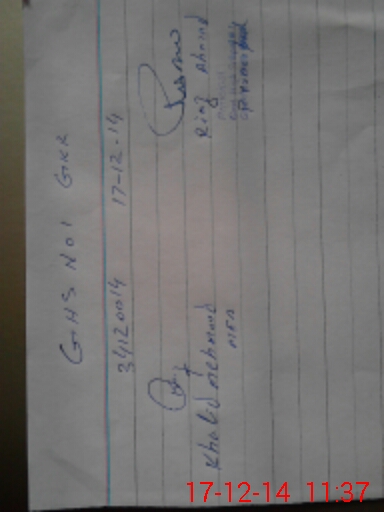 GHS NO1 GKR
34120014 17-12-14
Riaz Ahmad
Khalid Mehmood
MEA
17-12-14 11:37